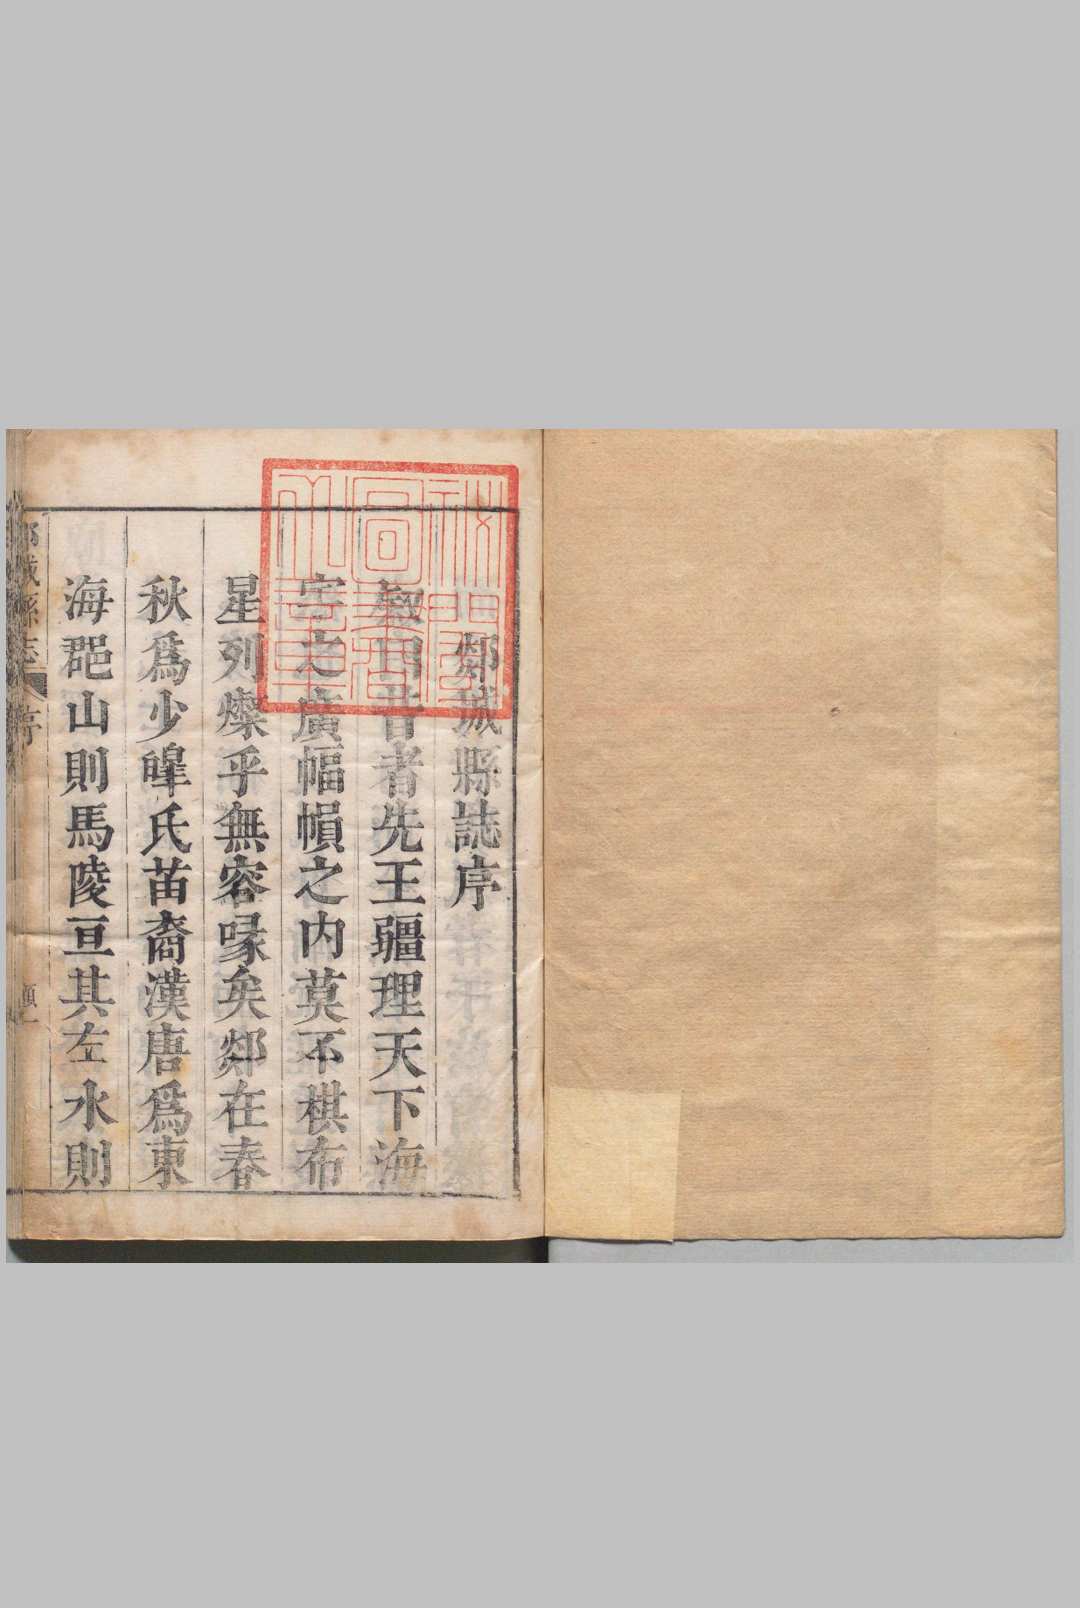 郯城縣誌序
叙曰昔者先王疆理天下海
宇之廣幅幀之内莫不棋布
星列燦乎無容喙矣郯在春
秋爲少皡氏苗裔漢唐爲東
海郡山則馬陵亘其左水則
郯城縣志 序